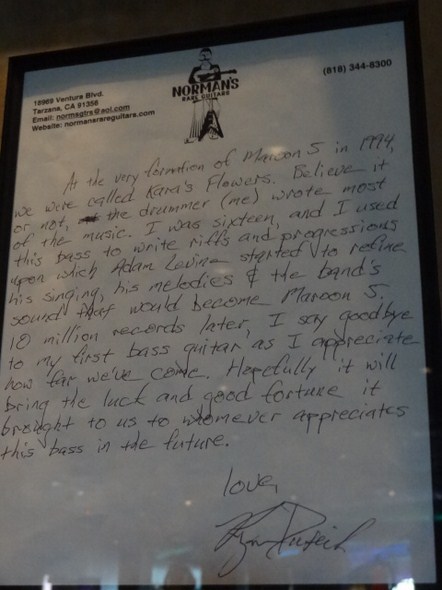 NORMAN'S
RARE GUITARS
18969 Ventura Blvd.
Tarzana, CA 91356
Email: normsgtrs@aol.com
Website: normansrareguitars.com
(818) 344-8300
At the very formation of Maroon 5 in 1994,
we were called Kara's Flowers. Believe it
or not, the drummer (me) wrote most
of the music. I was sixteen, and I used
this bass to write riffs and progressions
upon which Adam Levine started to refine
his singing, his melodies & the band's
sound that would become Maroon 5.
10 million records later, I say goodbye
to my first bass guitar as I appreciate
how far we've come. Hopefully it will
bring the luck and good fortune it
brought to us to whomever appreciates
this bass in the future.
love,